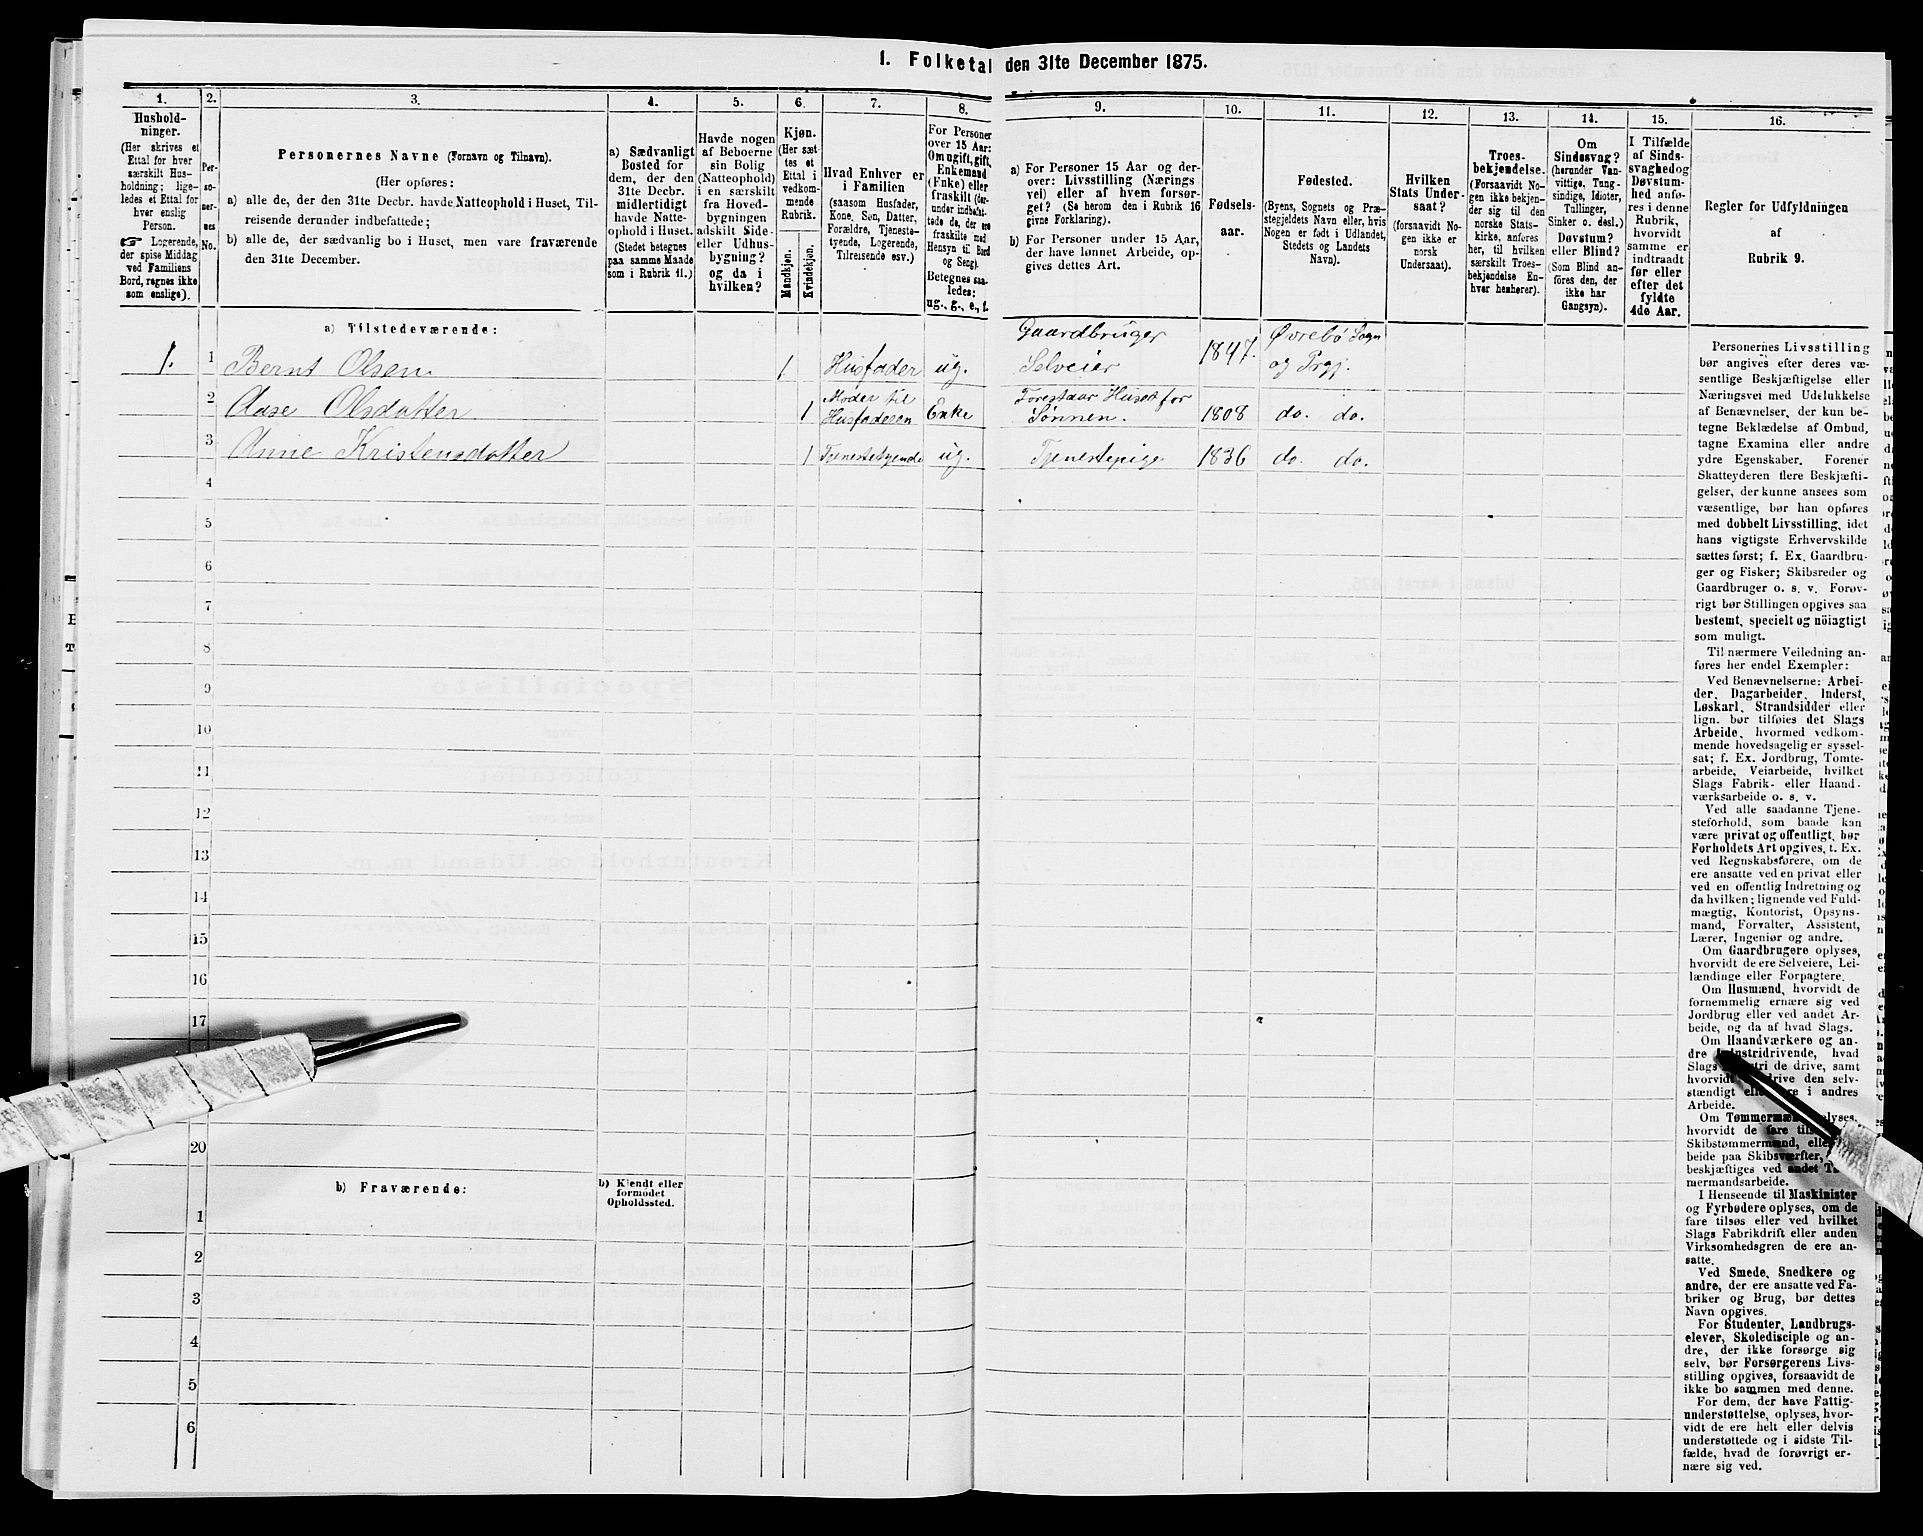 1. Folketal den 31te December 1875.
1.
2.
3.
4.
5.
6.
7.
8.
9.
10.
11.
12.
13.
14.
15.
16.
Hushold-
ninger.
(Her skrives et
Ettal for hver
særskilt Hus-
holdning; lige-
ledes et Ettal for
hver enslig
Person.
☞ Logerende,
der spise Middag
ved Familiens
Bord, regnes ikke
som enslige).
Per-
so-
ner-
nes
No.
Personernes Navne (Fornavn og Tilnavn).
(Her opføres:
a) alle de, der den 31te Decbr. havde Natteophold i Huset, Til-
reisende derunder indbefattede;
b) alle de, der sædvanlig bo i Huset, men vare fraværende
den 31te December.
a) Sædvanligt
Bosted for
dem, der den
31te Decbr.
midlertidigt
havde Natte-
ophold i Huset.
(Stedet betegnes
paa samme Maade
som i Rubrik 11.)
Havde nogen
af Beboerne
sin Bolig
(Natteophold)
i en særskilt
fra Hoved-
bygningen
adskilt Side-
eller Udhus-
bygning?
og da i
hvilken?
Kjøn.
(Her sæt-
tes et
Ettal i
vedkom-
mende
Rubrik.
Mandkjøn.
Kvindekjøn.
Hvad Enhver er
i Familien
(saasom Husfader,
Kone, Søn, Datter,
Forældre, Tjeneste-
tyende, Logerende,
Tilreisende osv.)
For Personer
over 15 Aar:
Om ugift, gift,
Enkemand
(Enke) eller
fraskilt (der-
under indbefat-
tede de, der ere
fraskilte med
Hensyn til Bord
og Seng).
Betegnes saa-
ledes:
ug., g., e., f.
a) For Personer 15 Aar og der-
over: Livsstilling (Nærings
vei) eller af hvem forsør-
get? (Se herom den i Rubrik 16
givne Forklaring).
b) For Personer under 15 Aar,
der have lønnet Arbeide, op-
gives dettes Art.
Fødsels-
aar.
Fødested.
(Byens, Sognets og Præ-
stegjeldets Navn eller, hvis
Nogen er født i Udlandet,
Stedets og Landets
Navn).
Hvilken
Stats Under-
saat?
(forsaavidt No-
gen ikke er
norsk
Undersaat).
Troes-
bekjendelse.
(Forsaavidt No-
gen ikke bekjen-
der sig til den
norske Stats-
kirke, anføres
her, til hvilken
særskilt Troes-
bekjendelse En-
hver henhører).
Om
Sindssvag?
(herunder Van-
vittige, Tung-
sindige, Idioter,
Tullinger,
Sinker o. desl.)
Døvstum?
eller Blind?
(Som Blind an-
føres den, der
ikke har
Gangsyn).
I Tilfælde
af Sinds-
svaghed og
Døvstum-
hed anfø-
res i denne
Rubrik,
hvorvidt
samme er
indtraadt
før eller
efter det
fyldte
4de Aar.
Regler for Udfyldningen
af
Rubrik 9.
a) Tilstedeværende:
1. 1 Bernt Olsen 1 Husfader ug. Gaardbruger Selveier 1847. Øvrebö Sogn og Prgj.
2 Aase Olsdatter 1 Moder til Husfaderen Enke Forestaar Huset for Sønnen. 1808 do. do.
3 Anne Kristensdatter 1 Tjenestetyende ug. Tjenestepige 1836 do. do.
4
5
6
7
8
9
10
11
12
13
14
15
16
17
20
b) Fraværende:
b) Kjendt eller
formodet
Opholdssted.
1
2
3
4
5
6
Personernes Livsstilling
bør angives efter deres væ-
sentlige Beskjæftigelse eller
Næringsvei med Udelukkelse
af Benævnelser, der kun be-
tegne Beklædelse af Ombud,
tagne Examina eller andre
ydre Egenskaber. Forener
Skatteyderen flere Beskjæfti-
gelser, der kunne ansees som
væsentlige, bør han opføres
med dobbelt Livsstilling, idet
hans vigtigste Erhvervskilde
sættes først; f. Ex. Gaardbru-
ger og Fisker; Skibsreder og
Gaardbruger o. s. v. Forøv-
rigt bør Stillingen opgives saa
bestemt, specielt og nöiagtigt
som muligt.
Til nærmere Veiledning an-
føres her endel Exempler:
Ved Benævnelserne: Arbei-
der, Dagarbeider, Inderst,
Løskarl, Strandsidder eller
lign. bør tilføies det Slags
Arbeide, hvormed vedkom-
mende hovedsagelig er syssel-
sat; f. Ex. Jordbrug, Tomte-
arbeide, Veiarbeide, hvilket
Slags Fabrik- eller Haand-
værksarbeide o. s. v.
Ved alle saadanne Tjene-
steforhold, som baade kan
være privat og offentligt, bør
Forholdets Art opgives, t. Ex.
ved Regnskabsførere, om de
ere ansatte ved en privat eller
ved en offentlig Indretning og
da hvilken; lignende ved Fuld-
mægtig, Kontorist, Opsyns-
mand, Forvalter, Assistent,
Lærer, Ingeniør og andre.
Om Gaardbrugere oplyses,
hvorvidt de ere Selveiere, Lei-
lændinge eller Forpagtere.
Om Husmænd, hvorvidt de
fornemmelig ernære sig ved
Jordbrug eller ved andet Ar-
beide, og da af hvad Slags.
Om Haandværkere og an-
dre Industridrivende, hvad
Slags de drive, samt
hvorvidt drive den selv-
stændigt i andres
Arbeide.
Om Tømmermænd oplyses,
hvorvidt de fare
Skibstømmermænd,
beide paa Skibsværfter,
beskjæftiges ved andet
mermandsarbeide.
I Henseende til Maskinister
og Fyrbødere oplyses, om de
fare tilsøs eller ved hvilket
Slags Fabrikdrift eller anden
Virksomhedsgren de ere an-
satte.
Ved Smede, Snedkere og
andre, der ere ansatte ved Fa-
briker og Brug, bør dettes
Navn opgives.
For Studenter, Landbrugs-
elever, Skoledisciple og an-
dre, der ikke forsørge sig
selv, bør Forsørgerens Livs-
stilling opgives, forsaavidt de
ikke bo sammen med denne.
For dem, der have Fattig-
understøttelse, oplyses, hvor-
vidt de ere helt eller delvis
understøttede og i sidste Til-
fælde, hvad de forøvrigt er-
nære sig ved.